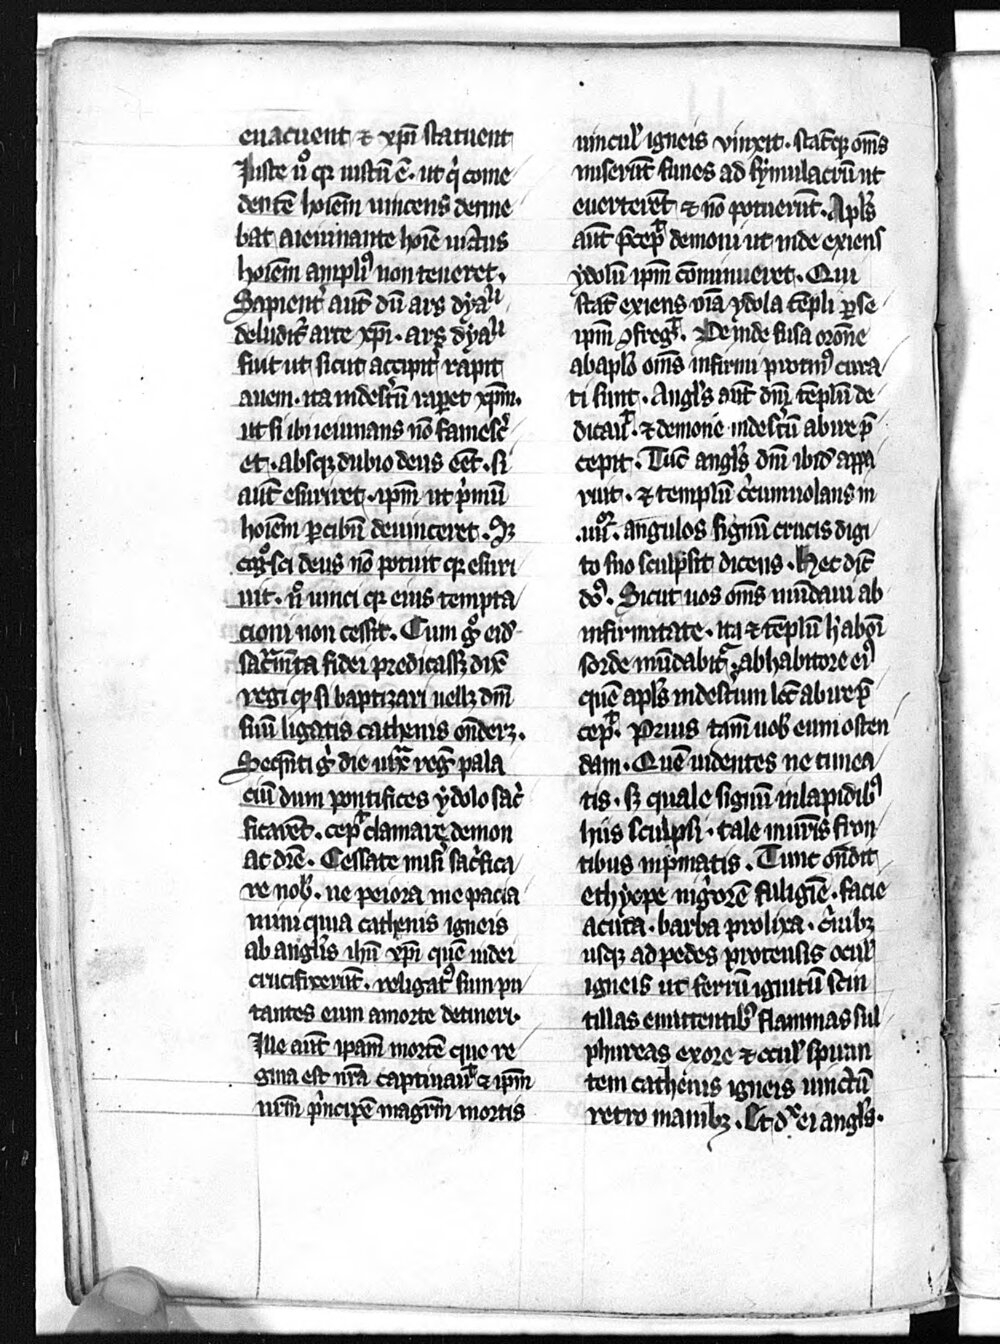 euacuent ⁊ xp̄i statuent
Iuste u͛o qꝛ iustū ē· ut qͥ come
dentē hoīem uincens detine
bat a ieiunante hoīe uictus
hoīem ampliꝰ non teneret·
Sapient͛ aut̄ dū ars dyaⁱⁱ
deludit͛ arte xp̄i· ars dyaⁱⁱ
fuit ut sicut accipit͛ rapit
auem· ita in des͛tū raperet xp̄m·
ut si ibi ieiunans nō famesc͛
et· absqꝫ dubio deus eēt· si
aut̄ esuriret· ipm̄ ut pͥmū
hoīem ꝑ cibū deuinceret· Sꝫ
cogͦsci deus nō potuit qꝛ esuri
uit· n̄ uinci qꝛ eius tempta
cioni non cessit· Cum gͦ eidē
sac͛mēta fidei predicassꝫ dix̄
regi qꝫ si baptizari uellꝫ dm̄
suū ligatis cathenis ondērꝫ·
Seqn̄ti gͦ die iuxͣ reḡ pala
ciū dum pontifices ydolo sac͛
ficarēt· cepͥt clamare demon
ac dr̄e· Cessate mis͛i sac͛fica
re nob͛· ne peiora me pacia
mini quia cathenis igneis
ab angl̄is ihū xp̄i quē iudei
crucifixerūt· religatꝰ sum pu
tantes eum a morte detineri·
Ille aut̄ ipām mortē que re
gina est nr̄a captiuauͥt ⁊ ipm̄
nr̄m pͥncipē magr̄m mortis
uincul̄ igneis vinxit· statqꝫ om̄s
miserūt funes ad symulacrū ut
euerterēt ⁊ nō potuerūt· Apl̄s
aut̄ p͛cepͥt demoni ut inde exiens
ydolū ipm̄ cōminueret· Qui
stat̄ exiens oīa ydola tēpli ꝑ se
ipm̄ ꝯfregͥt· Deinde fusa orōne
ab apl̄o om̄s infirmi protinꝰ cura
ti sunt· Angl̄s aut̄ dn̄i tēplū de
dicauͥt· ⁊ demonē in des͛tū abire p̄
cepit· Tūc angl̄s dn̄i ibidē appa
ruit· ⁊ templū c͛cumuolans in
·iiiiᵒʳ· angulos signū crucis digi
to suo sculpsit dicens· Hec dīc
dn̄s· Sicut uos om̄s mūdaui ab
infirmitate· ita ⁊ tēplū h͛ ab oī
sorde mūdabitͬ ⁊ ab habitore eiꝰ
quē apl̄s in des͛tum loc̄ abire p̄
cepͥt· Prius tam̄ uob̄ eum osten
dam· Quē uidentes ne timea
tis· sꝫ quale signū in lapidibꝰ
hiis sculpsi· tale in ur̄is fron
tibus inp̄matis· Tunc on̄dit
ethyope nigͥorē fuligīe· facie
acuta· barba prolixa· c͛nibꝫ
usqꝫ ad pedes protensis ocul̄
igneis ut ferrū ignitū scin
tillas emittentibꝰ flammas sul
phureas ex ore ⁊ ocul̄ spiran
tem cathenis igneis uinctū
retro manibꝫ· Et dͯ ei angl̄s·